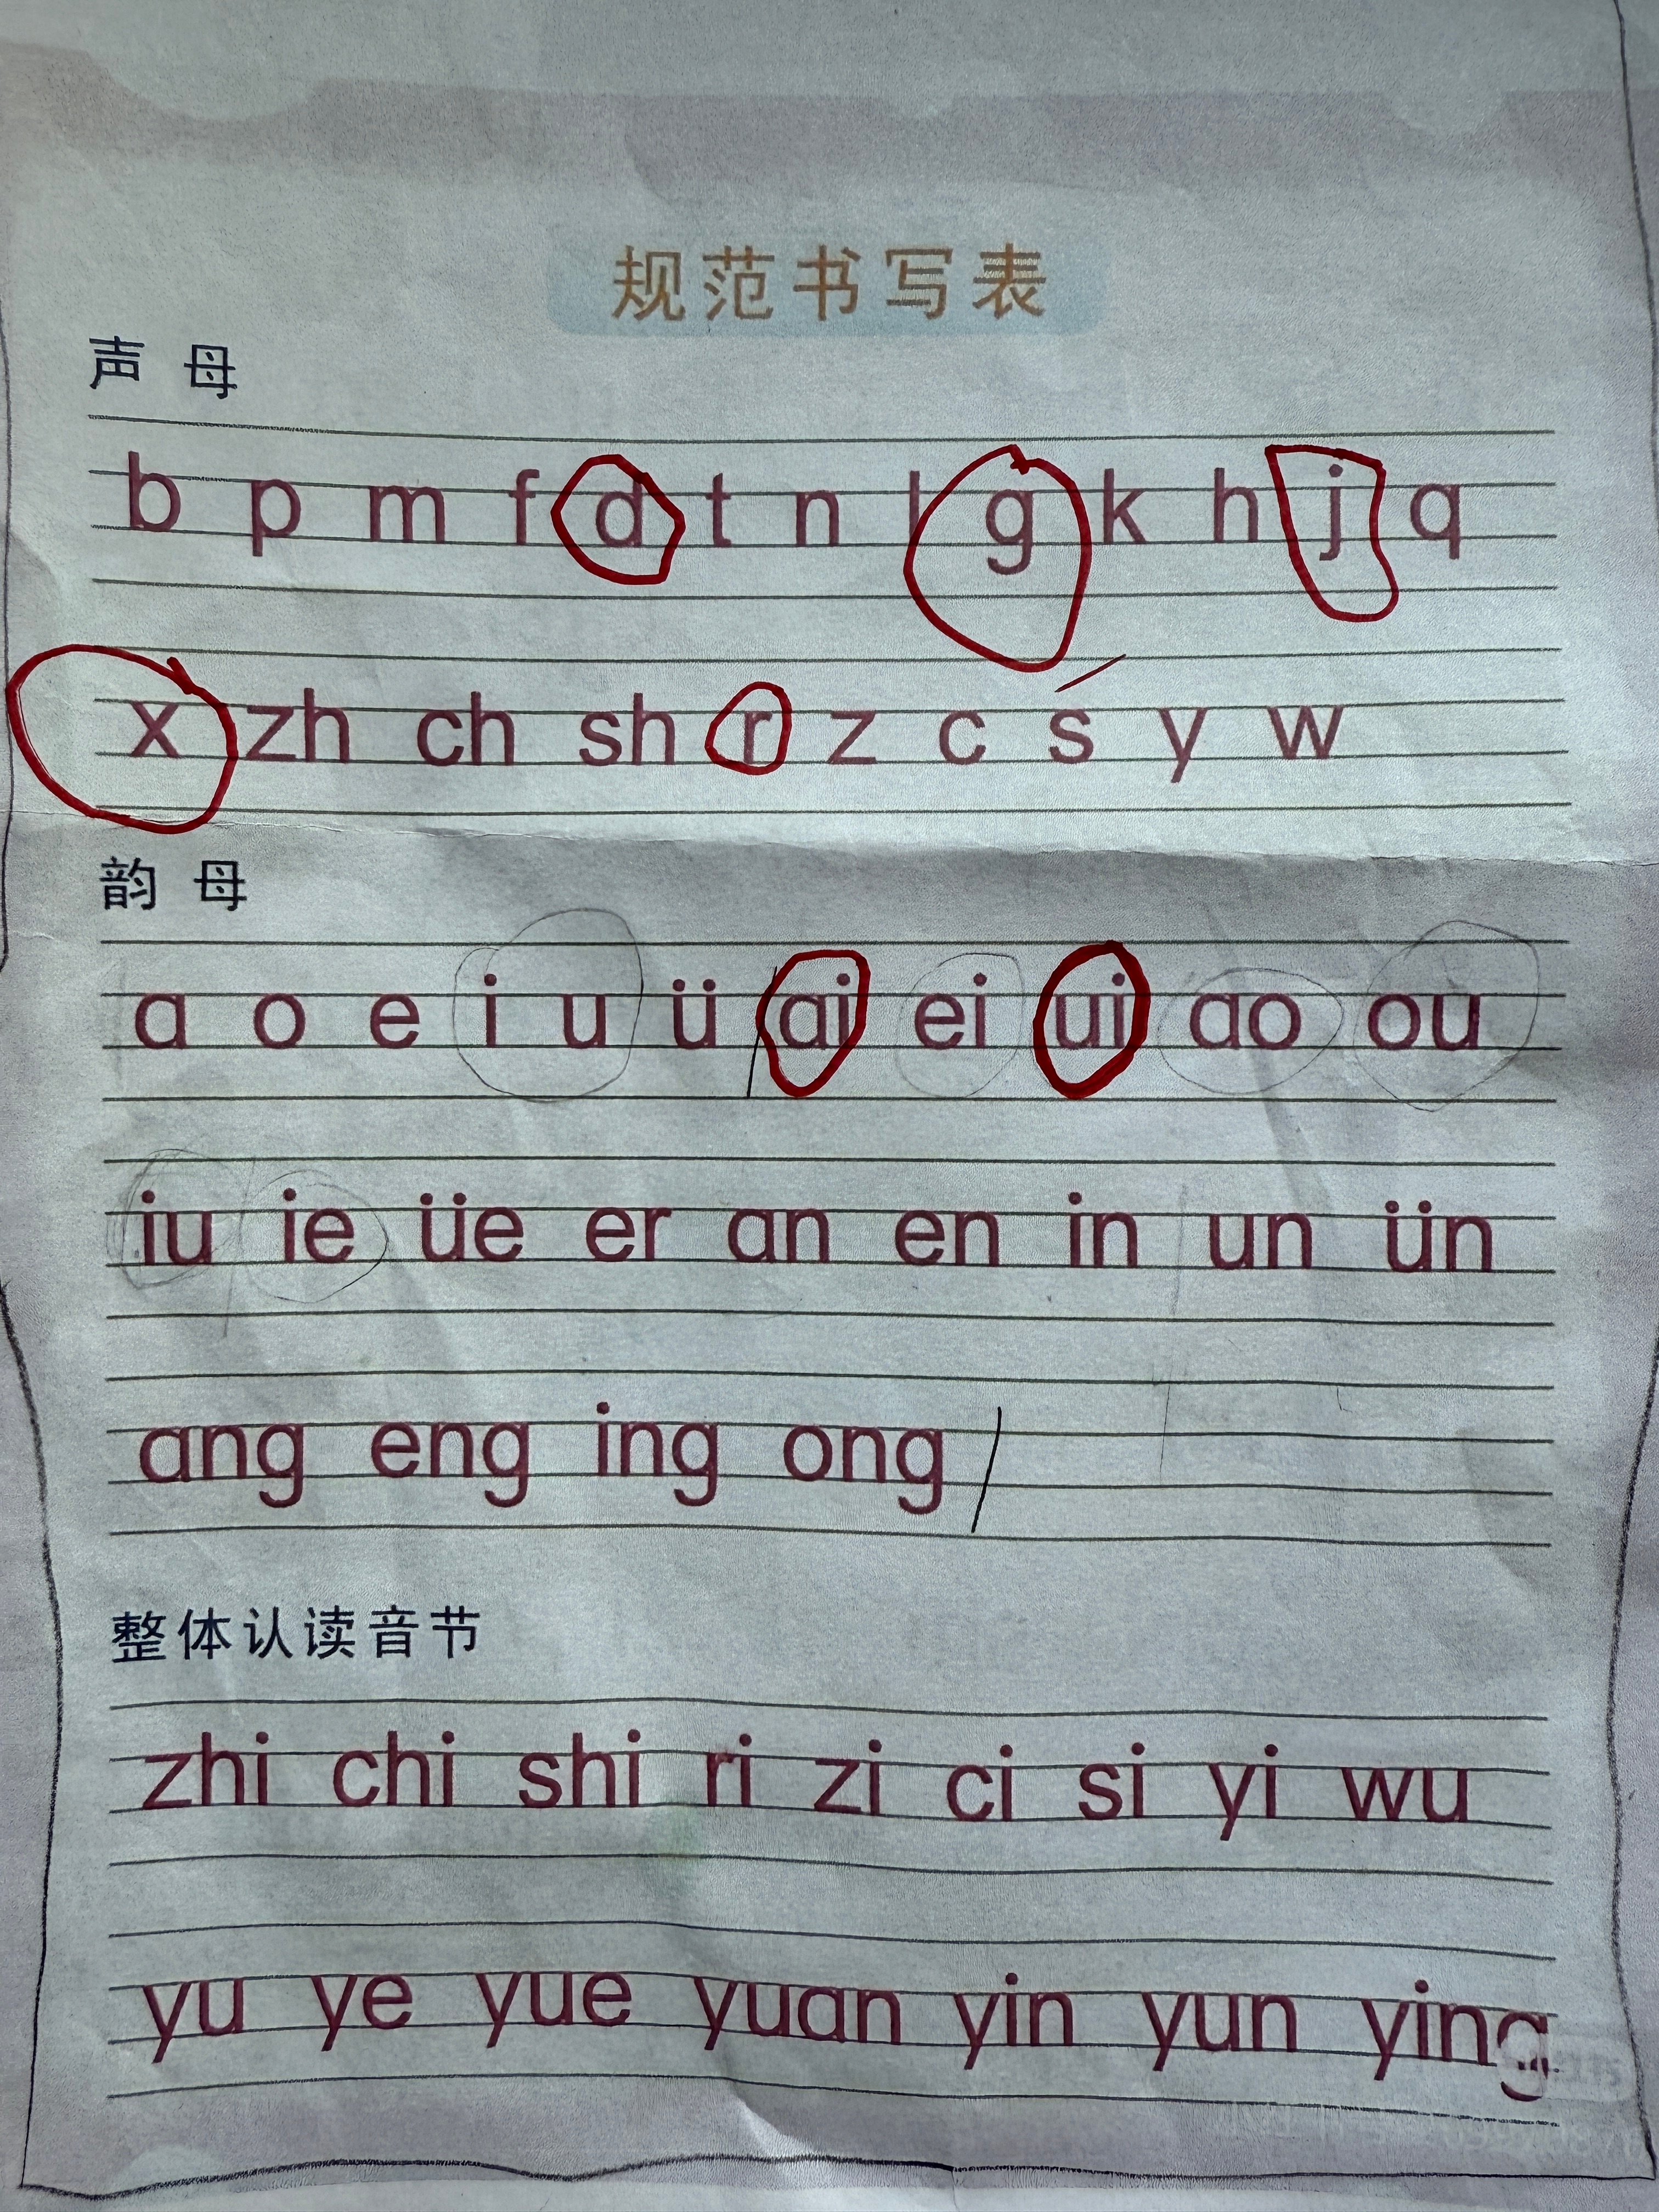 规范书写表
声母
b p m f d t n l g k h j q
x zh ch sh r z c s y w
韵母
a o e i u ü ai ei ui ao ou
iu ie üe er an en in un ün
ang eng ing ong
整体认读音节
zhi chi shi ri zi ci si yi wu
yu ye yue yuan yin yun ying